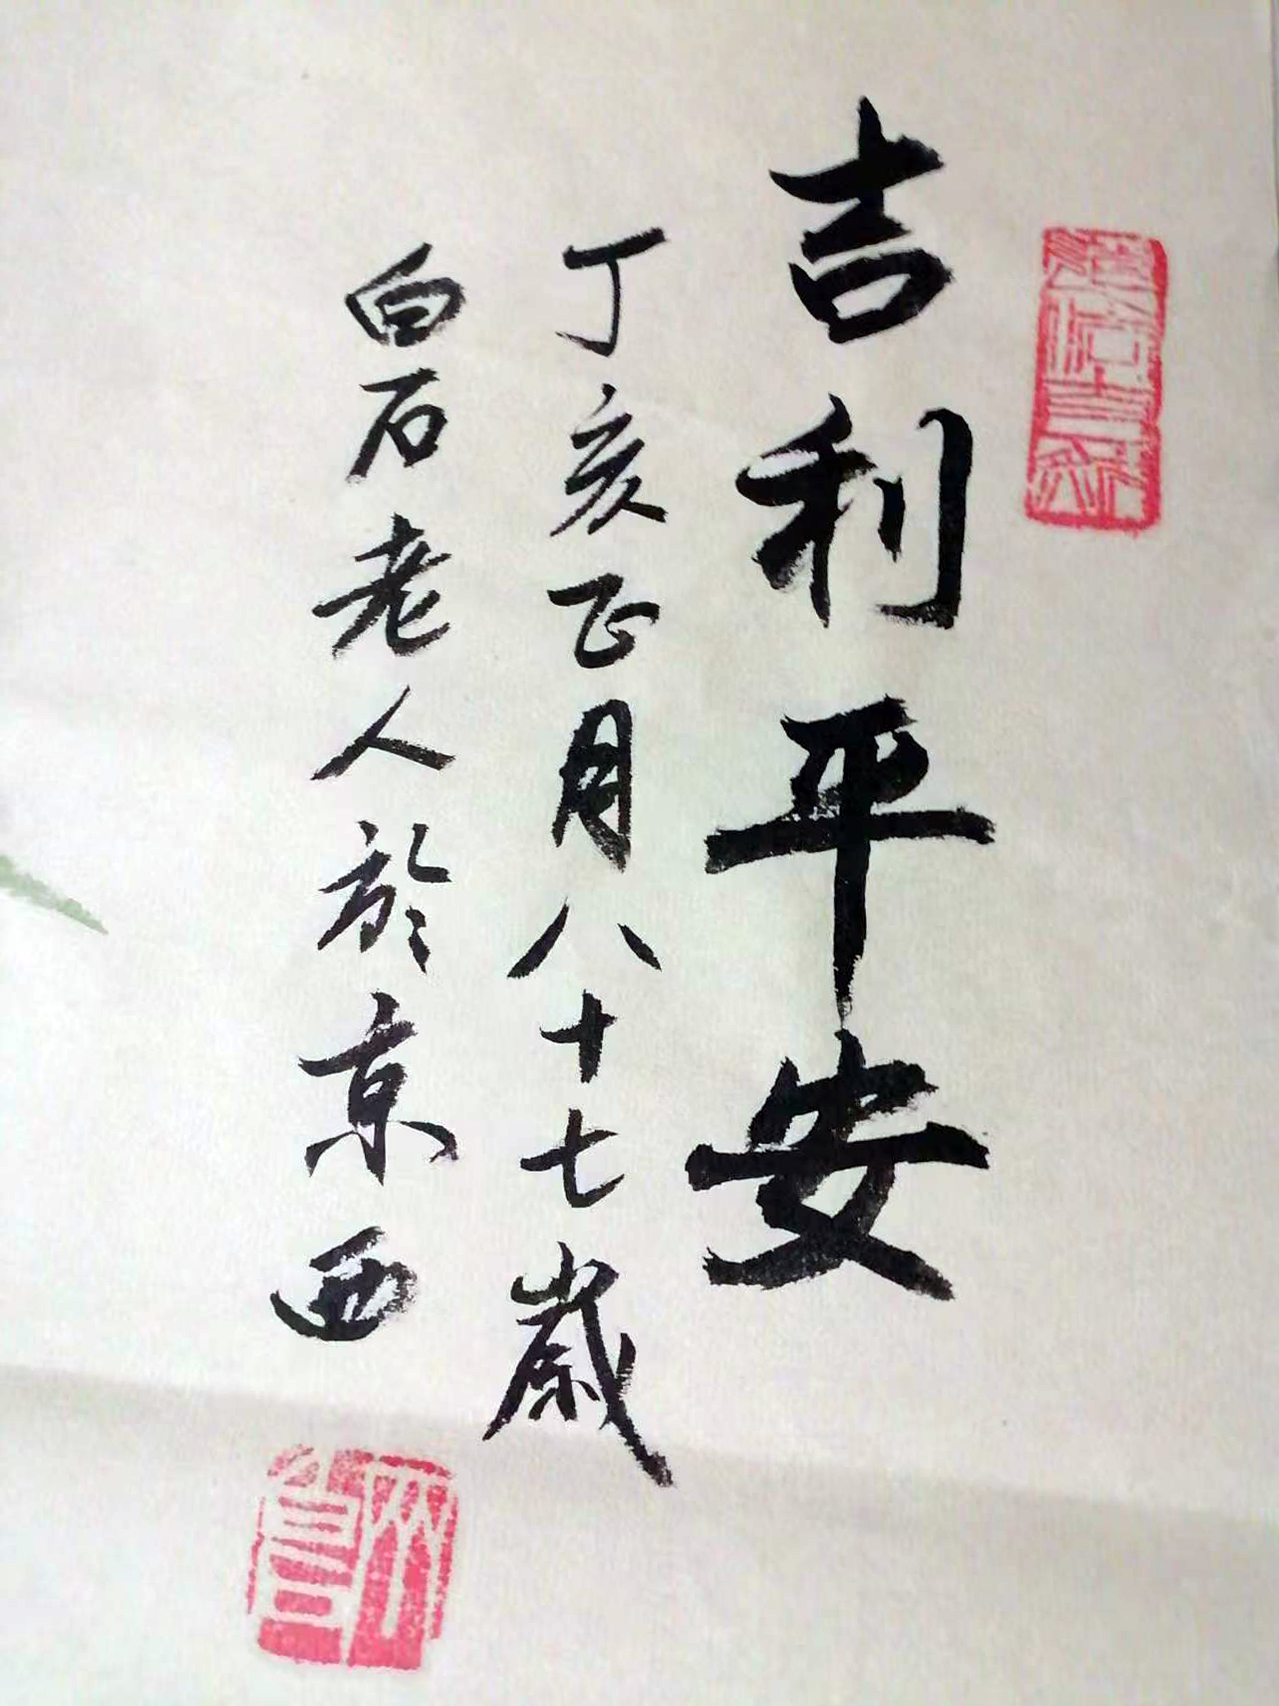 吉利平安
丁亥正月八十七歲
白石老人於京西